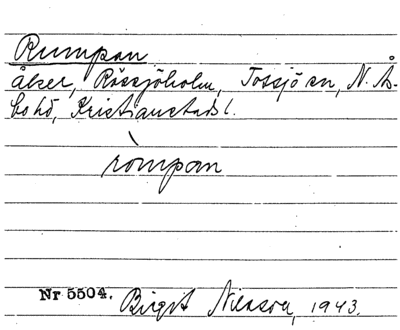 Rumpan
åker, Rössjöholm, Tossjö sn, N. Ås-
bo hd, Kristianstads l.
ròmpan
Nr 5504. Birgit Nilsson, 1943.